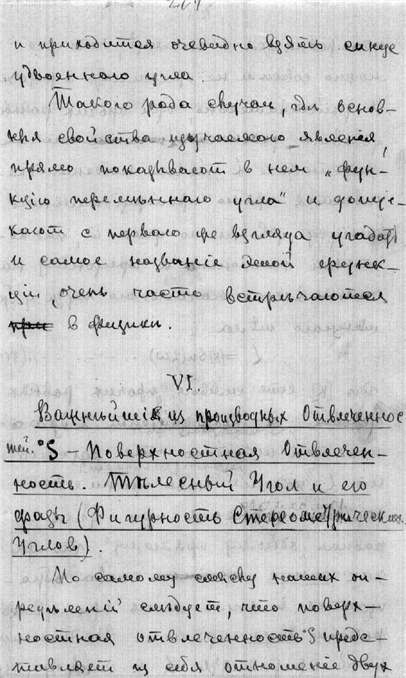 и приходится очевидно взять синус
удвоеннаго угла.
Такого рода случаи, гдѣ основ-
ныя свойства изучаемаго явленія,
прямо показываютъ в нем „фун-
кцію перемѣннаго угла" и допус-
каютъ с перваго же взгляда угадать
и самое названіе этой функ-
ціи, очень часто встрѣчаются
при в физикѣ.
VI.
Важнѣйшія из производных Отвлеченнос
тей. °S – Поверхностная Отвлечен-
ность. Тѣлесный Угол и его
фазы (Фигурность Стереометрических
Углов).
По самому смыслу наших оп-
редѣленій слѣдует, что поверх-
ностная отвлеченность °S предс-
тавляет из себя отношеніе двух